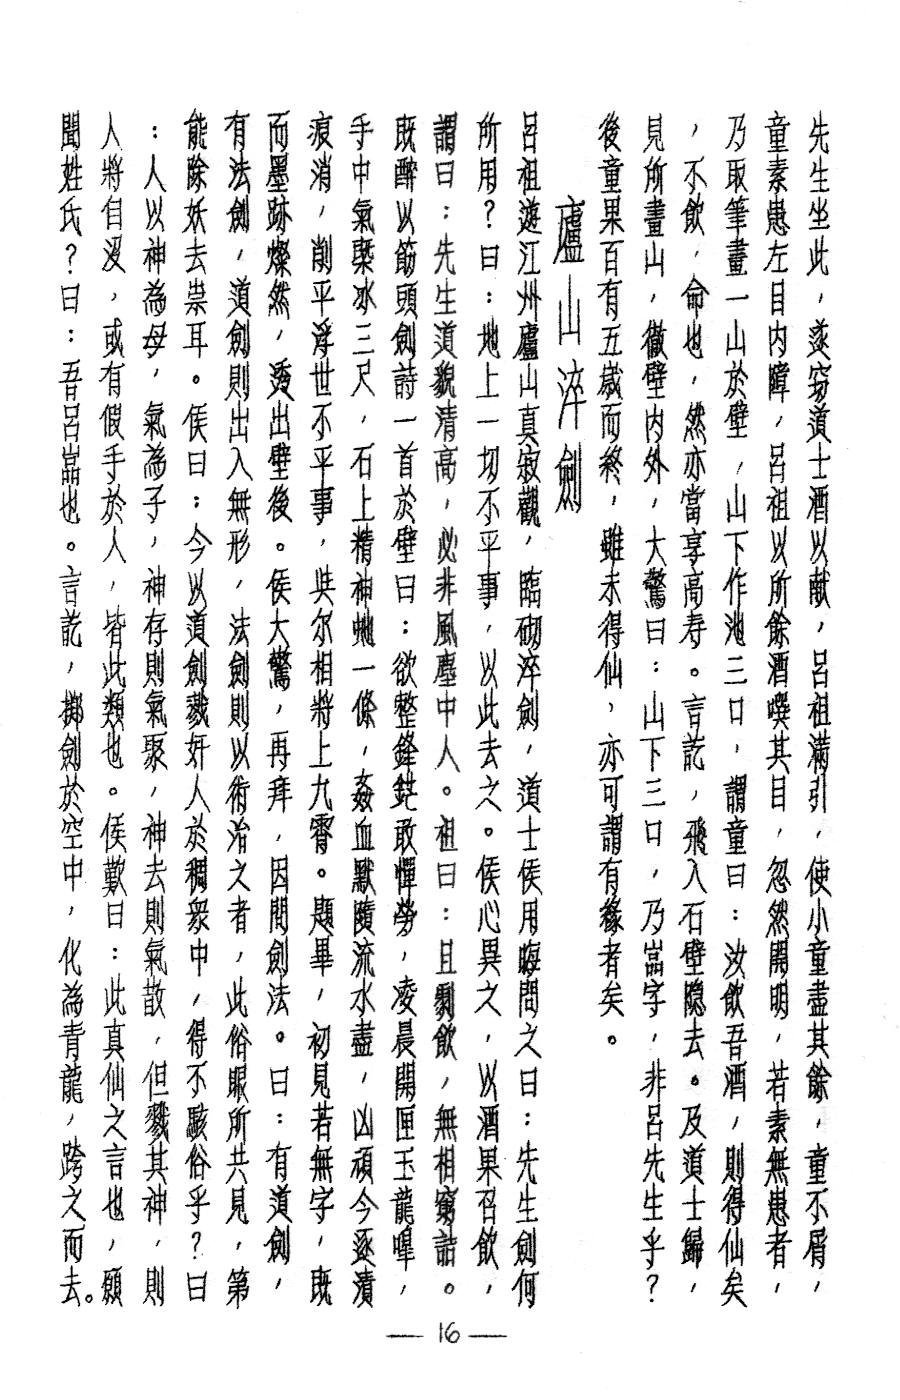 先生坐此，遂窃道士酒以献，呂祖滿引，使小童盡其餘，童不屑，
童素患左目內障，呂祖以所餘酒噀其目，忽然開明，若素無患者，
乃取筆畫一山於壁，山下作池三口，謂童曰：汝飲吾酒，則得仙矣
，不飲，命也，然亦當享高寿。言訖，飛入石壁隐去。及道士歸，
見所畫山，徹壁內外，大驚曰：山下三口，乃嵓字，非呂先生乎？
後童果百有五歲而終，雖未得仙，亦可謂有緣者矣。
廬山淬劍
呂祖遊江州廬山真寂觀，臨砌淬劍，道士侯用晦問之曰：先生劍何
所用？曰：地上一切不平事，以此去之。侯心異之，以酒果召飲，
謂曰：先生道貌清高，必非風塵中人。祖曰：且剩飲，無相窮詰。
既醉以筯頭劍詩一首於壁曰：欲整鋒鋩敢憚勞，凌晨開匣玉龍嘷，
手中氣槩冰三尺，石上精神虵一條，姦血默隨流水盡，凶頑今逐漬
痕消，削平浮世不平事，與尔相將上九霄。題畢，初見若無字，既
而墨跡燦然，透出壁後。侯大驚，再拜，因問劍法。曰：有道劍，
有法劍，道劍則出入無形，法劍則以術治之者，此俗眼所共見，第
能除妖去祟耳。侯曰：今以道劍戮奸人於稠衆中，得不駭俗乎？曰
：人以神為母，氣為子，神存則氣聚，神去則氣散，但戮其神，則
人將自沒，或有假手於人，皆此類也。侯歎曰：此真仙之言也，願
聞姓氏？曰：吾呂嵓也。言訖，擲劍於空中，化為青龍，跨之而去。
— 16 —